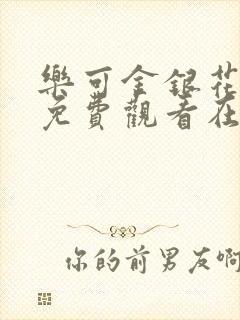 樂可金銀花
免費觀看在
你的前男友啊